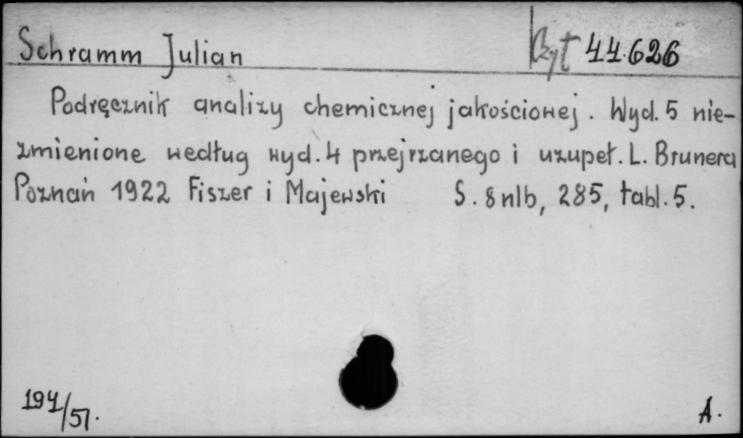 Schramm Julian 44.626
Podręcznik analizy chemicznej jakościowej. Wyd. 5 nie-
zmienione według wyd. 4 przejrzanego i uzupeł. L. Brunera
Poznań 1922 Fiszer i Majewski S. 8 nlb, 285, tabl. 5.
A.